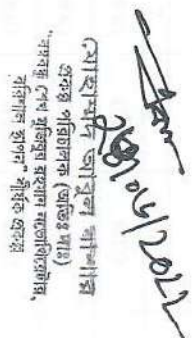 ২৪/০৬/2022
(মোহাম্মদ আবুল কালাম
প্রকল্প পরিচালক (অতিঃ দাঃ)
"বঙ্গবন্ধু শেখ মুজিবুর রহমান নভোথিয়েটার,
বরিশাল স্থাপন" শীর্ষক প্রকল্প